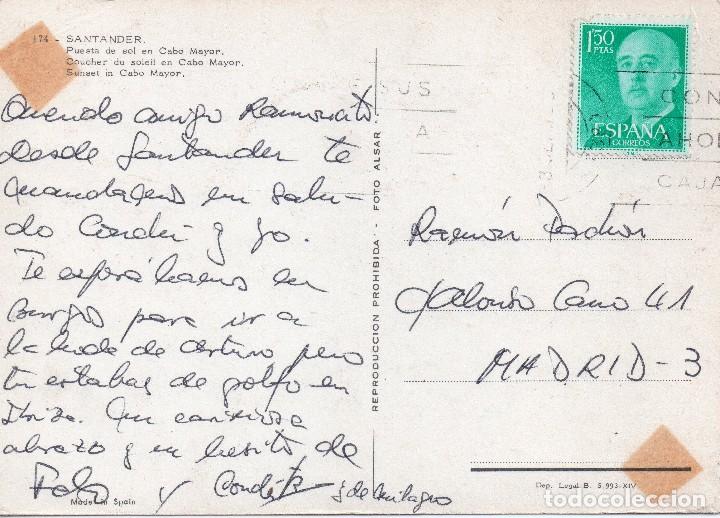 174 - SANTANDER.
Puesta de sol en Cabo Mayor.
Coucher du soleil en Cabo Mayor.
Sunset in Cabo Mayor.
Querido amigo Ramoncito
desde Santander te
mandamos un salu-
do Conchi y yo.
Te esperábamos en
Burgos para ir a
la boda de Arturo pero
tu estabas de golfo en
Ibiza. Un cariñoso
abrazo y un besito de
y
y de Milagro
Made in Spain
REPRODUCCION PROHIBIDA - FOTO ALSAR
1'50
PTAS
ESPAÑA
CORREOS
CON
AHO
CAJA
US
A
Ramón
Alonso Cano 41
MADRID-3
Dep. Legal B. 5.993-XIV
todocoleccion.net